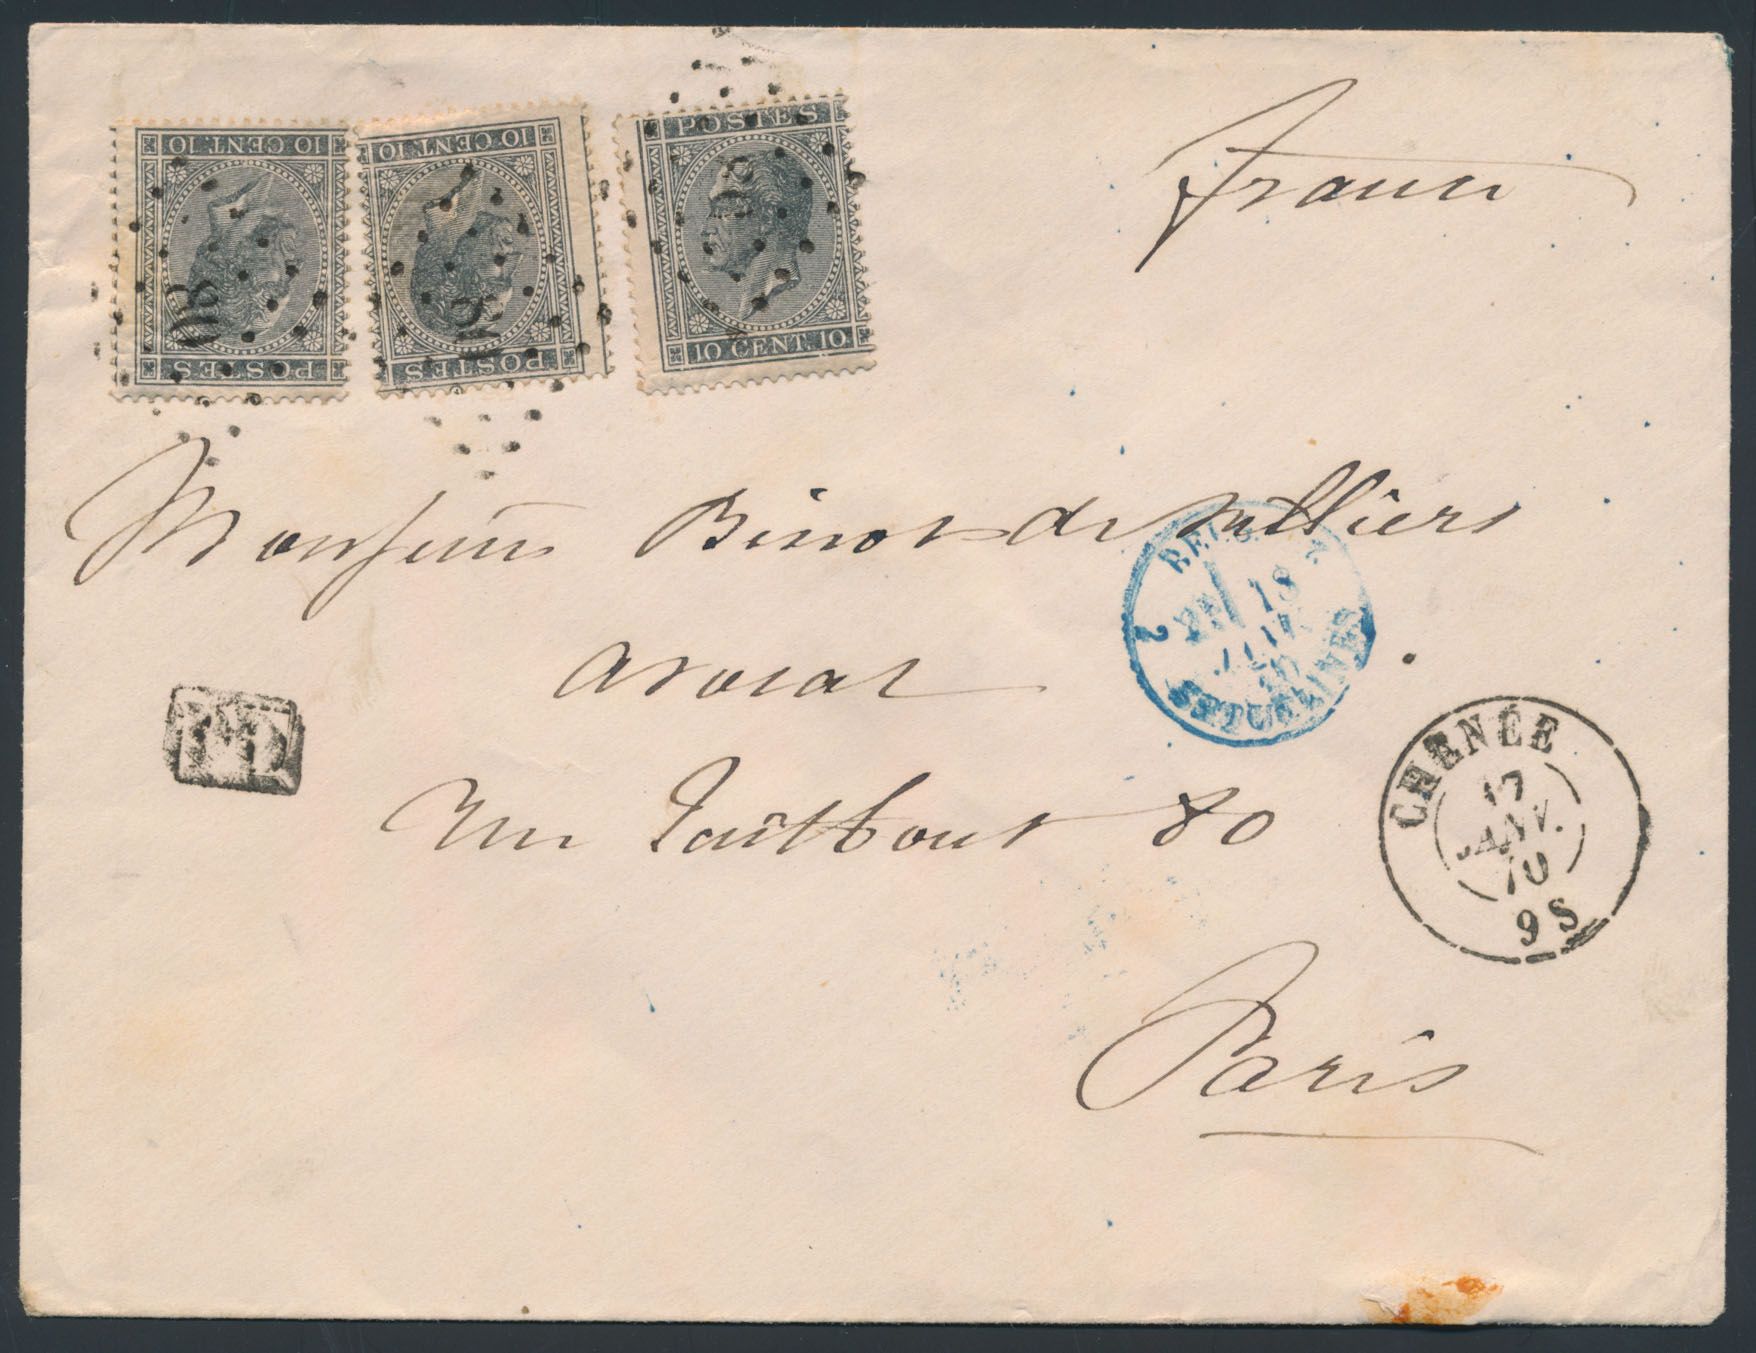 10 CENT. 10
POSTES
10 CENT. 10
POSTES
POSTES
10 CENT. 10
France
Monsieur Binot de Villiers
avocat
Rue Taitbout 80
Paris
PD
2 18 JANV.
CHENÉE
17
JANV.
70
9 S